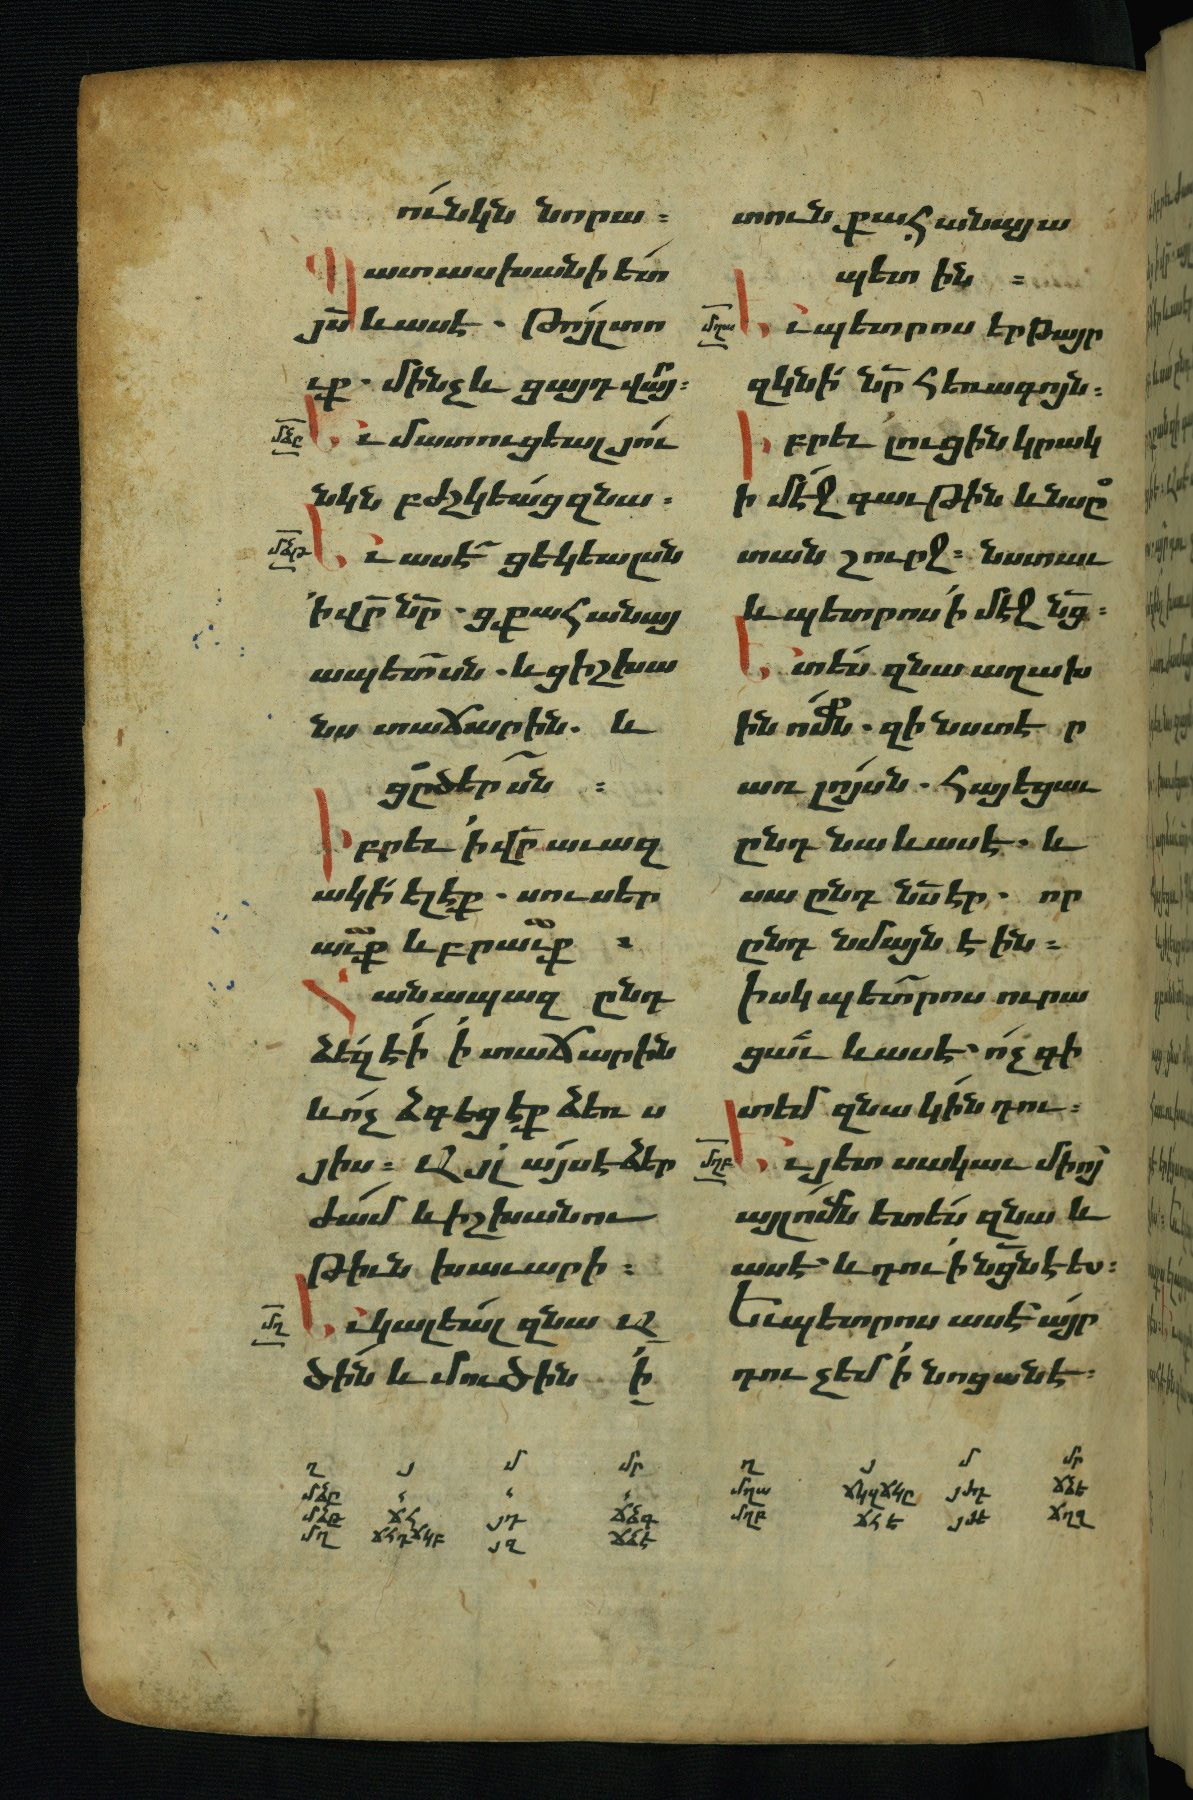 ունկն նորա ։
Պատասխանի ետ
յս̅ և ասէ · Թոյլ տո
ւք · մինչև ցայդ վա̅յ ։
մձը Եւ մատուցեալ յու
նկն բժշկեաց զնա ։
մձթ Եւ ասէ ցեկեալսն
ի վր̅ նր̅ · ց քահանայ
ապետսն · և ցիշխա
նս տաճարին · և
ցծերսն ։
Իբրեւ ի վր̅ աւազ
ակի ելէք · սուսեր
աւք և բրաւք ։
Հանապազ ընդ
ձեզ էի ի տաճարին
և ոչ ձգեցէք ձեռ ս
յիս ։ Այլ այս է ձեր
ժամ և իշխանու
թիւն խաւարի ։
մղ Եւ կալեալ զնա ա
ծին և մուծին ի
տուն քահանայա
պետին ։
մղա Եւ պետրոս երթայր
զկնի նր̅ հեռագոյն ։
Իբրեւ լուցին կրակ
ի մէջ գաւթին և նսը
տան շուրջ ։ նստաւ
և պետրոս ի մէջ նց̅ ։
Ետես զնա աղախ
ին ոմն · զի նստէ ր
առ լոյսն · հայեցաւ
ընդ նա և ասէ · և
սա ընդ նս̅ էր · որ
ընդ նմայն էին ։
Իսկ պետրոս ուրա
ցաւ և ասէ · ոչ գի
տեմ զնա կին դու ։
մղբ Եւ յետ սակաւ միոյ
այլ ոմն ետես զնա և
ասէ · և դու ի նց̅նէ ես ։
Եւ պետրոս ասէ այր
դու չեմ ի նոցանէ ։
ղ յ մ մր
մձը
մձթ ճհ յդ ճձգ
մղ ճհդ ճկբ յզ ճձէ
ղ յ մ մր
մղա ճկզ ճկը յժդ ճձե
մղբ ճհե յժէ ճղզ